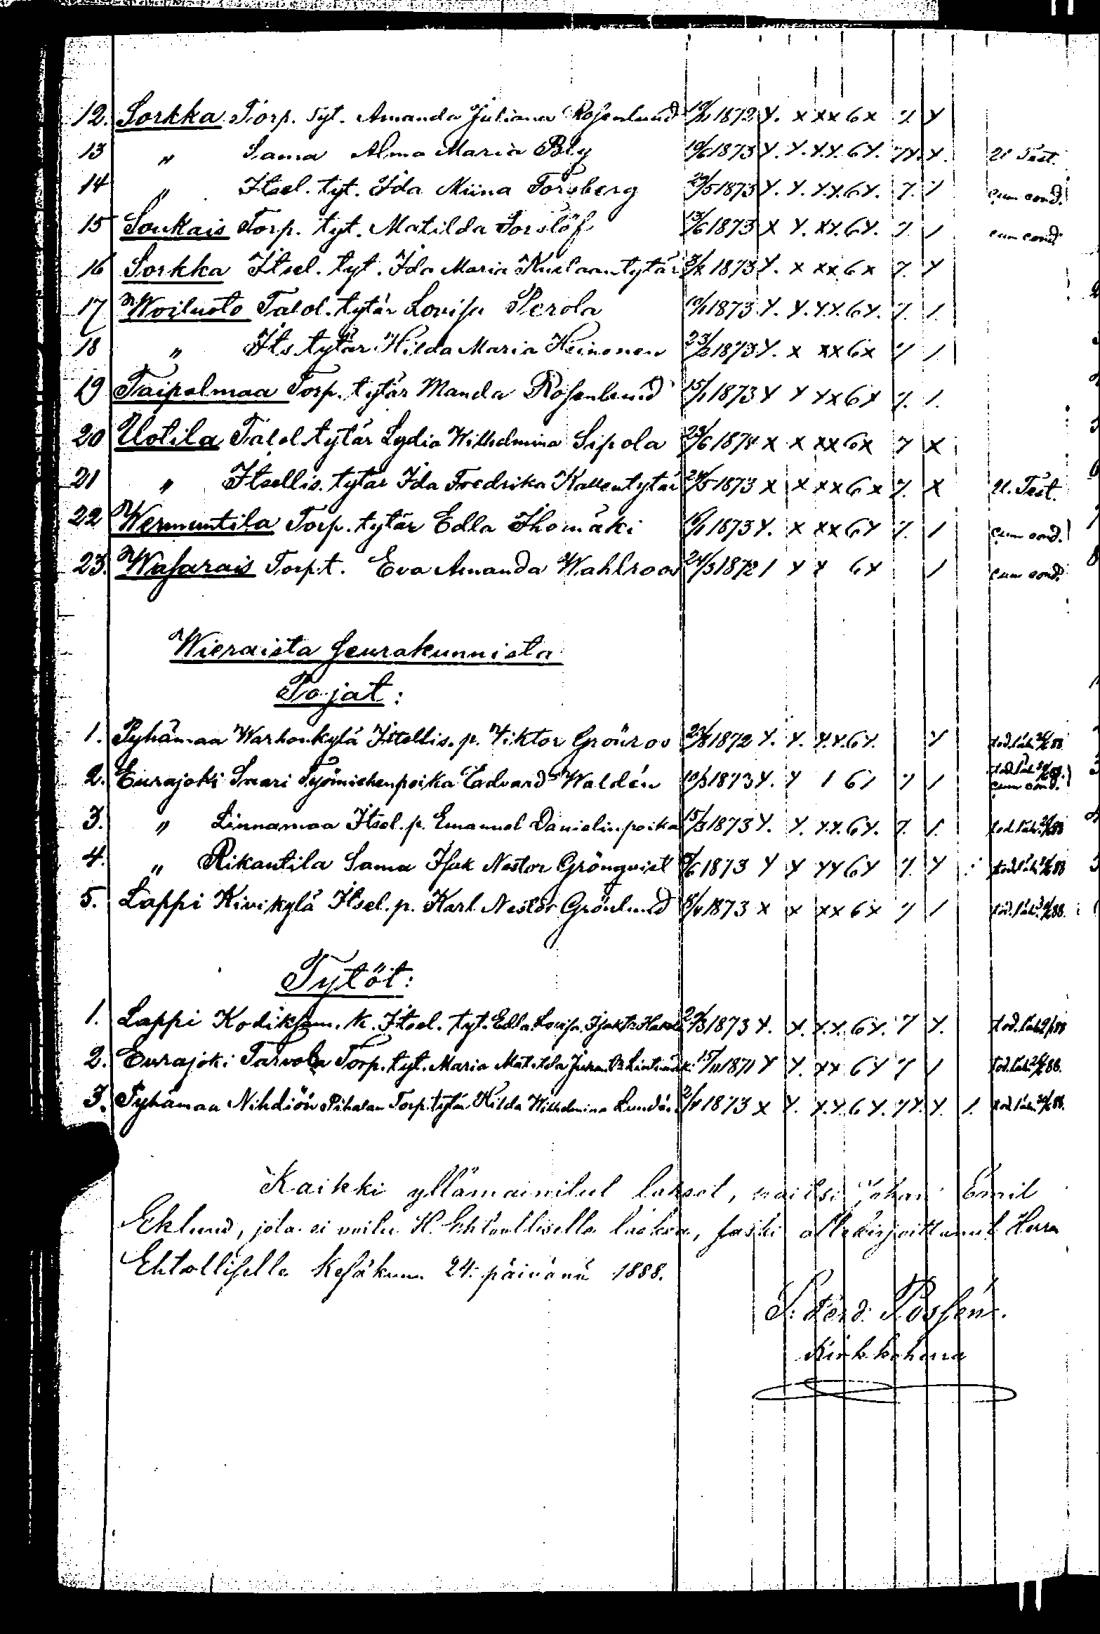 12. Sorkka Torp. tyt. Amanda Juliana Rosenlund 1872 x. x xx 6x 7. x
13 " Sama Alma Maria Bly 19/6 1873 x. x. x.x. 6x. 7x. x. U. Test.
14 " Itsel. tyt. Ida Miina Forsberg 29/5 1873 x. x. xx 6x. 7. 1 cum cond.
15 Soukais Torp. tyt. Matilda Forslöf 13/6 1873 x x. xx. 6x. 7. 1. cum cond.
16 Sorkka Itsel. tyt. Ida Maria Kustaantytär 1873 x. x xx 6x 7. x
17 Woiluoto Talol. tytär Lovisa Perola 1873 x. x. x.x. 6x. 7. 1.
18 " Its. tytär Hilda Maria Heinonen 23/2 1873 x. x xx 6x 7 1.
19 Taipalmaa Torp. tytär Manda Rosenlund 15/1 1873 x x xx 6x 7. 1.
20 Uotila Talol. tytär Lydia Wilhelmina Sipola 23/6 1874 x x xx 6x 7 x
21 " Itsellis. tytär Ida Fredrika Kallentytär 24/5 1873 x x xx 6x 7. x U. Test.
22 Wermuntila Torp. tytär Edla Ihomäki 1873 x. x xx 6x 7. 1 cum cond.
23. Wasarais Torp. t. Eva Amanda Wahlroos 24/3 1872 1 x x 6x 1 cum cond.
Wieraista seurakunnista
Pojat:
1. Pyhämaa Warhonkylä Itsellis. p. Viktor Grönroos 1872 x. x. x.x. 6x. x tod. luk.
2. Eurajoki Saari Työmiehenpoika Edvard Waldén 10/3 1873 x. x 1 61 7 1 cum cond.
3. " Linnamaa Itsel. p. Emanuel Danielinpoika 1873 x. x. x.x. 6x. 7. 1. tod. luk.
4. " Rikantila Sama Isak Nestor Grönqvist 1873 x x xx 6x 7. x tod. luk.
5. Lappi Kivikylä Itsel. p. Karl Nestor Grönlund 1873 x x xx 6x 7 1 tod. luk.
Tytöt:
1. Lappi Kodiksam. k. Itsel. tyt. Edla Lovisa 1873 x. x. x.x. 6x. 7 x. tod. luk.
2. Eurajoki Tarvola Torp. tyt. Maria Matilda 15/11 1871 x x. xx 6x 7 1 tod. luk.
3. Pyhämaa Nihdiön Pihalan Torp. tytär Hilda Wilhelmina Lundén 1873 x x. x.x. 6x. 7x. x. 1. tod. luk.
Kaikki yllämainitut lapset, Johan Emil
Eklund, jota ei voitu H. Ehtoolliselle laskea, laski allekirjoittanut Herran
Ehtoolliselle Kesäkuun 24. päivänä 1888.
Kirkkoherra